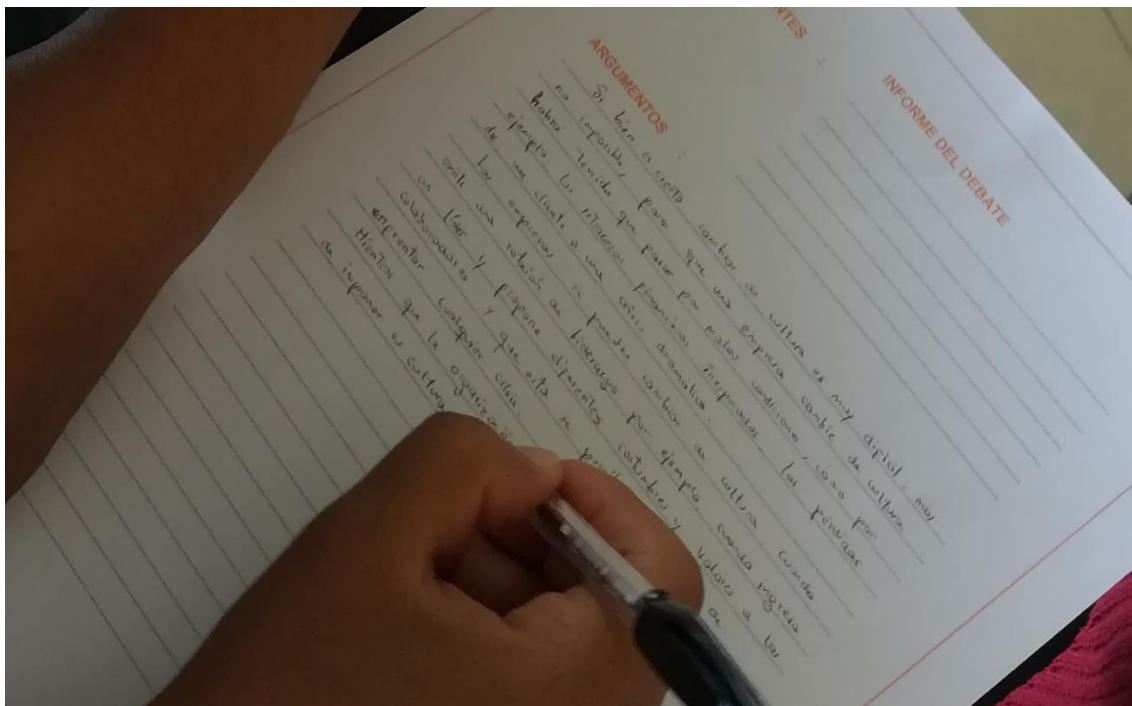 INFORME DEL DEBATE
NTES
ARGUMENTOS :
Si bien es cierto cambiar de cultura es muy dificil, mas
no imposible, para que una empresa cambie de cultura
habrá tenido que pasar por malas condiciones, como por
ejemplo los retrocesos financieros inesperados, las pérdidas
de un cliente o una crisis dramatica.
Las empresas si pueden cambiar de cultura cuando
existe una rotación de liderazgo por ejemplo, cuando ingresa
un líder y propone diferentes costumbres y valores a los
colaboradores y que esta se de
enfrentar cualquier crisis.
Mientras que la
de imponer su cultura